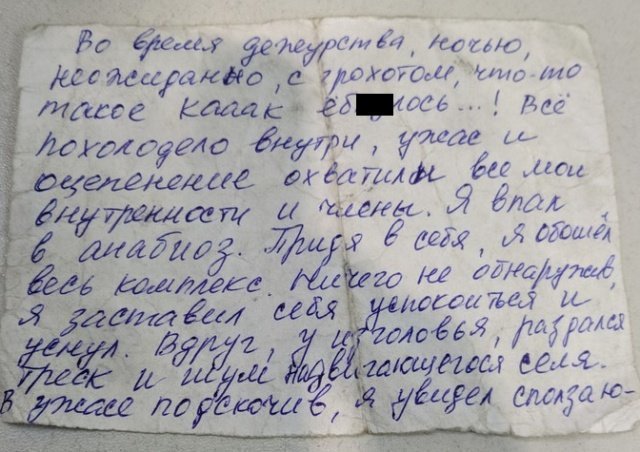 Во время дежурства, ночью,
неожиданно, с грохотом, что-то
такое кааак ёб лось...! Всё
похолодело внутри, ужас и
оцепенение охватили все мои
внутренности и члены. Я впал
в анабиоз. Придя в себя, я обошёл
весь комплекс. Ничего не обнаружив,
я заставил себя успокоиться и
уснул. Вдруг, у изголовья, раздался
треск и шум надвигающегося селя.
В ужасе подскочив, я увидел сползаю-